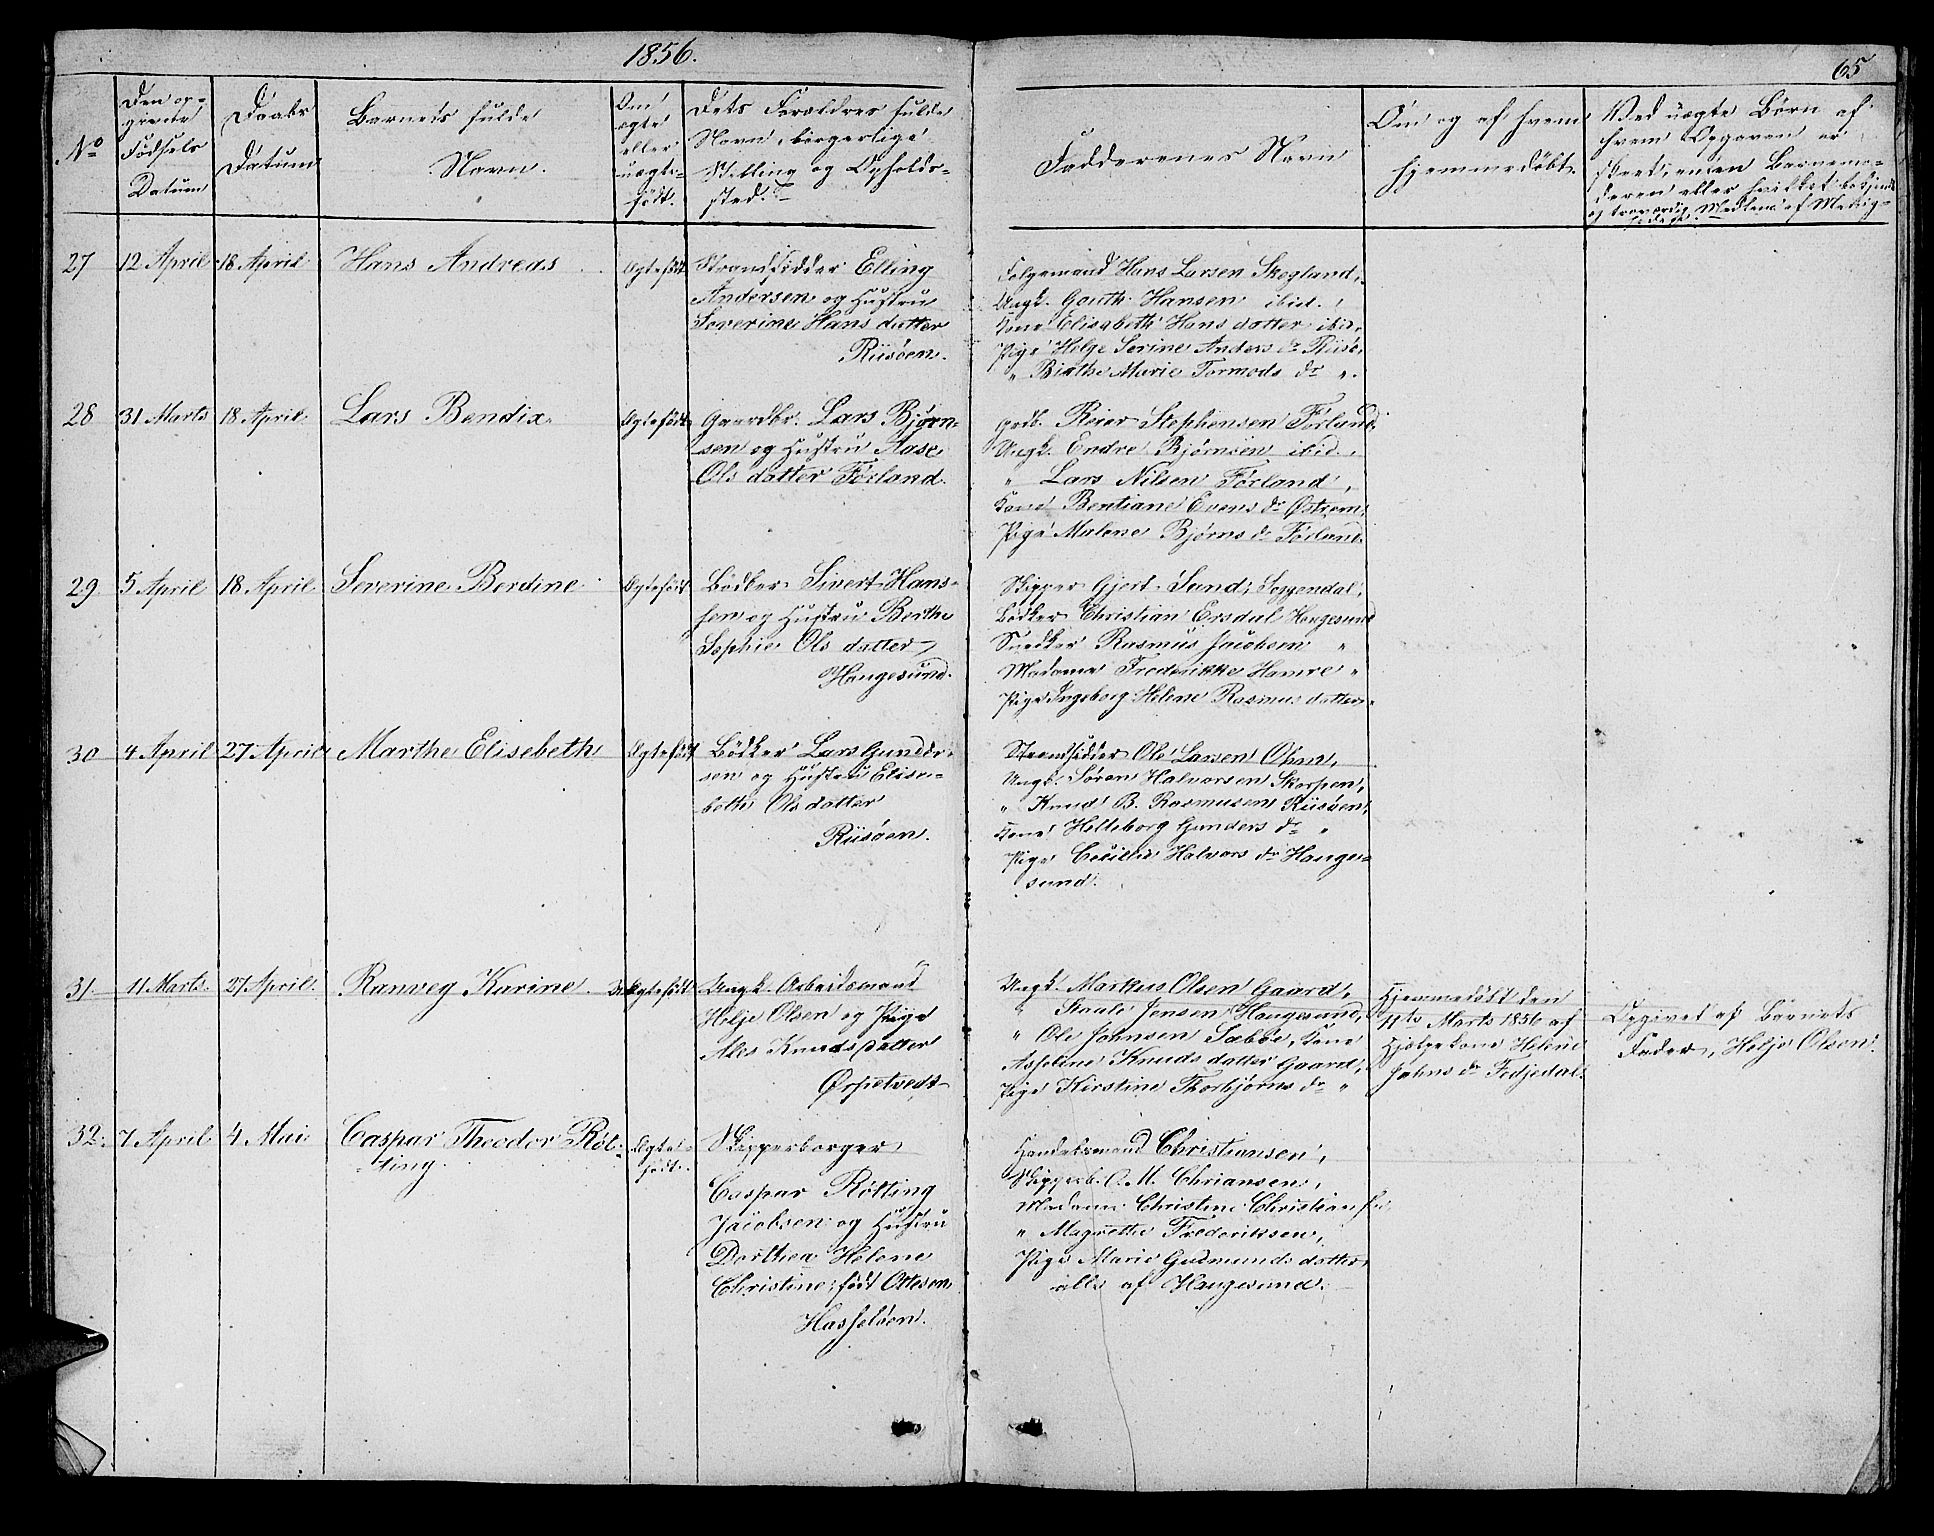 1856.
65
No
Den op-
givne
Födsels
Datum
Daabs
Datum
Barnets fulde
Navn.
Om
ægte
eller
uægte
födt.
Dets Forældres fulde
Navn, borgerlige
Stilling og Opholds-
sted.
Faddernes Navn
Om og af hvem
hjemmedöbt.
Ved uægte Börn af
hvem Opgaven er
skeet, enten Barnemo-
deren eller hvilket bekjendt
og troværdig Medlem af Menig-
27
12 April
18 April
Hans Andreas
Ægtefödt
Strandsidder Elling
Andersen og Hustru
Severine Hans datter
Riisöen.
Folgemand Hans Larsen Skogland,
Ungk. Gauth Hansen ibid.,
Kone Elisabeth Hans datter ibid,
Pige Helge Serine Anders dr Riisö,
" Birthe Marie Tormods dr ".
28
31 Marts
18 April.
Lars Bendix.
Ægtefödt
Gaardbr. Lars Björn-
sen og Hustru Aase
Ols datter Förland.
Grdb. Reier Stephensen Förland,
Ungk. Endre Björnsen ibid.,
" Lars Nilsen Förland,
Kone Bentiane Evens dr Östrem,
Pige Malene Björns dr Förland.
29.
5 April
18 April
Severine Berdine
Ægtefödt
Bödker Sivert Hans-
sen og Hustru Berthe
Sophie Ols datter,
Haugesund.
Skipper Gjert Sund, Soggendal,
Bödker Christian Ersdal Haugesund
Snedker Rasmus Jacobsen "
Madame Frederikke Hamre "
Pige Ingeborg Heline Rasmus datter "
30
4 April
27 April
Marthe Elisebeth
Ægtefödt
Bödker Lars Gunder-
sen og Hustru Elise-
beth Ols datter
Riisöen.
Strandsidder Ole Larsen Ohm,
Ungk. Sören Halvorsen Skorpen,
" Knud B. Rasmusen Riisöen,
Kone Helleborg Gunders dr "
Pige Cecilie Halvors dr Hauge-
sund.
31.
11 Marts.
27 April.
Ranveg Karine.
Uægtefödt
Ungk. Arbeidsmand
Helje Olsen og Pige
Ales Knuds datter
Ørpetvedt
Ungk. Markus Olsen Gaard,
" Staale Jensen Haugesund,
" Ole Johnsen Sæböe, Kone
Asseline Knuds datter Gaard,
Pige Kirstine Thorbjörns dr "
Hjemmedöbt den
11te Marts 1856 af
Hjelpekone Helene
Johns dr Fedjedal.
Opgivet af Barnets
Fader, Helje Olsen.
32.
7 April
4 Mai
Caspar Theodor Röt-
ting.
Ægte-
födt.
Skipperborger
Caspar Rötting
Jacobsen og Hustru
Dorthea Helene
Christine, födt Ottesen
Hasselöen.
Handelsmand Christiansen,
Skipperb. O. M. Chriansen,
Madame Christine Christiansen,
" Magrethe Frederiksen,
Pige Marie Gudmunds datter,
alle af Haugesund.